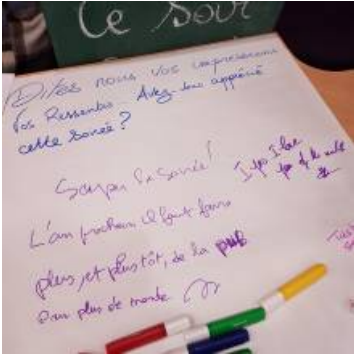 Ce Soir
Dites nous vos impressions
Vos Ressentis. Avez-vous apprécié
cette soirée ?
Super la soirée !
L'an prochain il faut faire
plus, et plus tôt, de la pub
Pour plus de monde